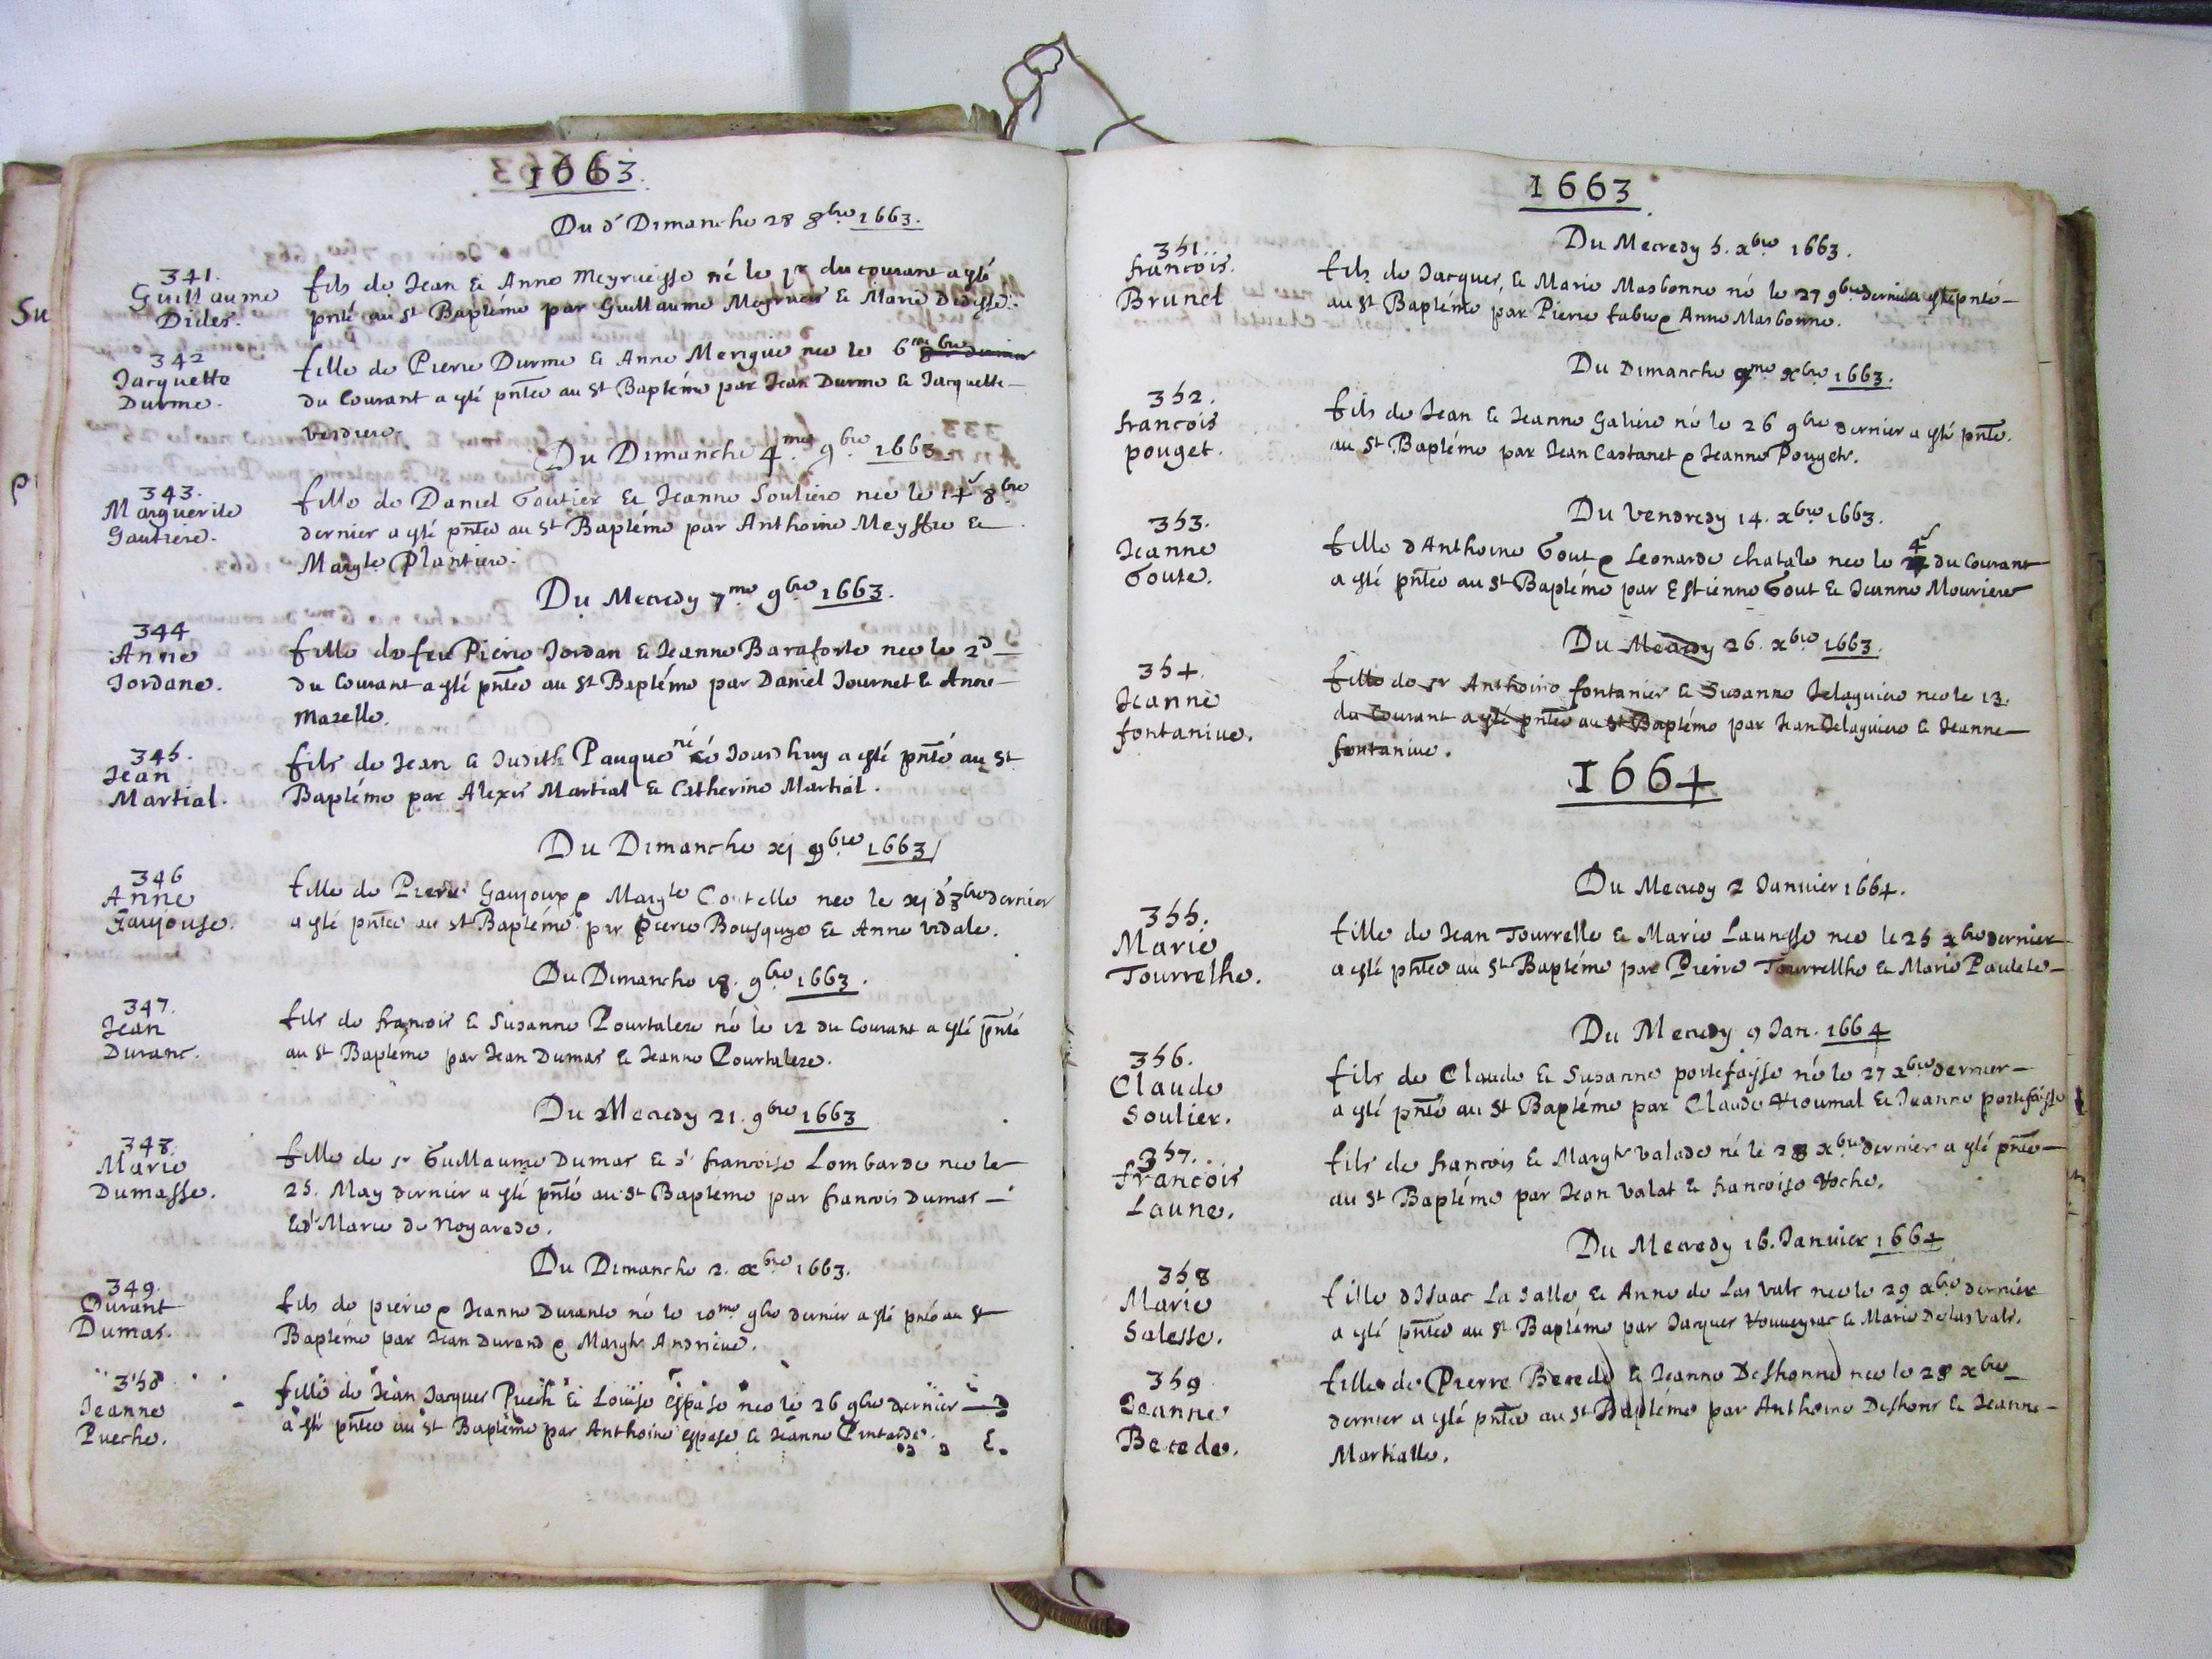 Su
P
1663.
Du d' Dimanche 28 8bre 1663.
341.
Guillaume
Dides.
fils de Jean & Anne Meyrueisse né le 1r du courant a esté
pnté au St Baptéme par Guillaume Meyrueis & Marie Didesse.
342
Jacquette
Durme.
fille de Pierre Durme & Anne Merigue nee le 6me
du Courant a esté pntée au St Baptéme par Jean Durme & Jacquette
Verdiere.
Du Dimanche 4.me 9bre 1663
343.
Marguerite
Gautiere.
fille de Daniel Gautier & Jeanne Souliere nee le 14 8bre
dernier a esté pntée au St Baptéme par Anthoine &
Margte Plantiere.
Du Mecredy 7me 9bre 1663.
344
Anne
Jordane.
fille de feu Pierre Jordan & Jeanne Baraforte nee le 2d
du Courant a esté pntée au St Baptéme par Daniel Journet & Anne
Mazelle.
345.
Jean
Martial.
fils de Jean & Judith Pauque né Jourdhuy a esté pnté au St
Baptéme par Alexis Martial & Catherine Martial.
Du Dimanche xj 9bre 1663
346
Anne
Gaujouse.
fille de Pierre Gaujoux & Margte Costelle nee le xj dernier
a esté pntée au St Baptéme par Pierre Bousquge & Anne Vidale.
Du Dimanche 18. 9bre 1663.
347.
Jean
Duranc.
fils de francois & Susanne Pourtalese né le 12 du Courant a esté pnté
au St Baptéme par Jean Dumas & Jeanne Pourtalese.
Du Mecredy 21. 9bre 1663
348.
Marie
Dumasse.
fille de sr Guillaume Dumas & d' francoise Lombarde nee le
25. May dernier a esté pnté au St Baptéme par francois Dumas
& d' Marie de Nogarede.
Du Dimanche 2. xbre 1663.
349.
Durant
Dumas.
fils de pierre & Jeanne Durante né le 10me 9bre dernier a esté pnté au St
Baptéme par Jean Durand & Margte Andrieue.
350
Jeanne
Pueche.
fille de Jean Jacques Puech & Louise Espase nee le 26 9bre dernier
a esté pntée au St Baptéme par Anthoine Espase & Jeanne Pintarde.
1663
Du Mecredy 5. xbre 1663.
351.
francois.
Brunel
fils de Jacques, & Marie Masbonne né le 27 9bre dernier a esté pnté
au St Baptéme par Pierre fabre & Anne Masbonne.
Du Dimanche 9me xbre 1663.
352.
francois
pouget.
fils de Jean & Jeanne Galiere né le 26 9bre dernier a esté pnté.
au St Baptéme par Jean Castanet & Jeanne Pougete.
Du Vendredy 14. xbre 1663.
353.
Jeanne
Goute.
fille d'Anthoine Gout & Leonarde chatale nee le 4 du Courant
a esté pntée au St Baptéme par Estienne Gout & Jeanne Mouriere
Du Mecredy 26. xbre 1663.
354.
Jeanne
fontaniue.
fille de sr Anthoine fontanier & Susanne Delaguiere nee le 13.
du Courant a esté pntée au St Baptéme par Jean Delaguiere & Jeanne
fontaniue.
1664
Du Mecredy 2 Januier 1664.
355.
Marie
Tourrelhe.
fille de Jean Tourrelle & Marie Launesse nee le 25 xbre dernier
a esté pntée au St Baptéme par Pierre Tourrellhe & Marie Paulete
Du Mecredy 9 Jan. 1664
356.
Claude
Soulier.
fils de Claude & Susanne portefaisse né le 27 xbre dernier
a esté pnté au St Baptéme par Claude Rioumal & Jeanne portefaisse
357.
francois
Laune.
fils de francois & Margte Valade né le 28 xbre dernier a esté pnté
au St Baptéme par Jean Valat & francoise Roche.
Du Mecredy 16. Januier 1664
358
Marie
Salesse.
fille d'Isaac La Salle & Anne de Las Vals nee le 29 xbre dernier
a esté pntée au St Baptéme par Jacques Rouueyrac & Marie Delas Vals.
359
Jeanne
Becede.
fille de Pierre Becede & Jeanne Deshonne nee le 28 xbre
dernier a esté pntée au St Baptéme par Anthoine Deshons & Jeanne
Martialle.